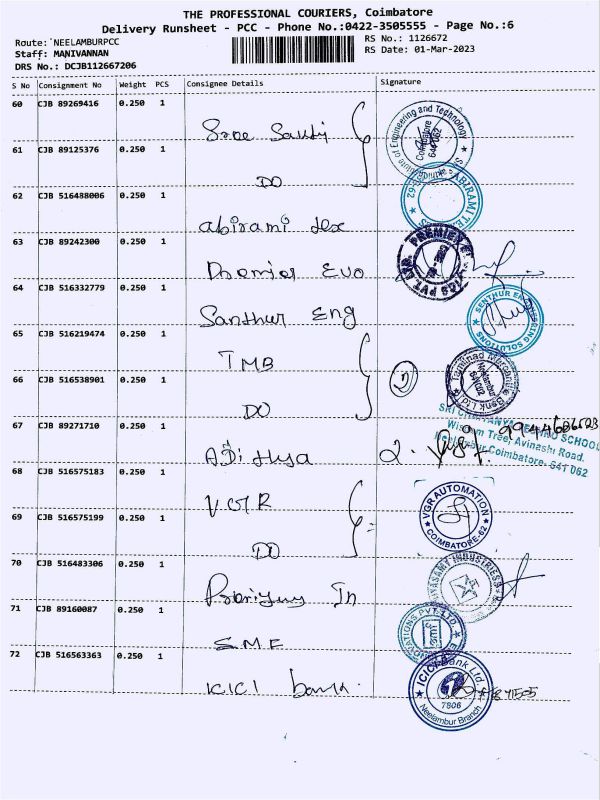 THE PROFESSIONAL COURIERS, Coimbatore
Delivery Runsheet - PCC - Phone No.:0422-3505555 - Page No.:6
Route: NEELAMBURPCC
RS No.: 1126672
Staff: MANIVANNAN
RS Date: 01-Mar-2023
DRS No.: DCJB112667206
S No Consignment No Weight PCS Consignee Details Signature
60 CJB 89269416 0.250 1
Sree Sakthi
61 CJB 89125376 0.250 1
DO
62 CJB 516488006 0.250 1
Abirami Tex
63 CJB 89242300 0.250 1
Premier Evo
64 CJB 516332779 0.250 1
Santhur Eng
SENTHUR ENGINEERING SOLUTIONS
65 CJB 516219474 0.250 1
TMB
Tamilnad Mercantile Bank Ltd
Neelambur
641062
66 CJB 516538901 0.250 1
DO
67 CJB 89271710 0.250 1
SRI CHAITANYA TECHNO SCHOOL
Wisdom Tree, Avinashi Road,
Neelambur, Coimbatore- 641 062
68 CJB 516575183 0.250 1
V.G.R
VGR AUTOMATION
COIMBATORE-62
69 CJB 516575199 0.250 1
DO
70 CJB 516483306 0.250 1
INDUSTRIES
71 CJB 89160087 0.250 1
INNOVATIONS PVT. LTD.
72 CJB 516563363 0.250 1
ICICI bank
ICICI Bank Ltd.
7806
Neelambur Branch